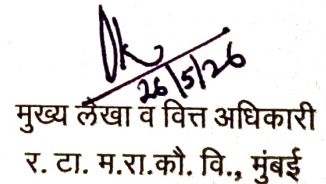 26/5/26
मुख्य लेखा व वित्त अधिकारी
र. टा. म.रा.कौ. वि., मुंबई